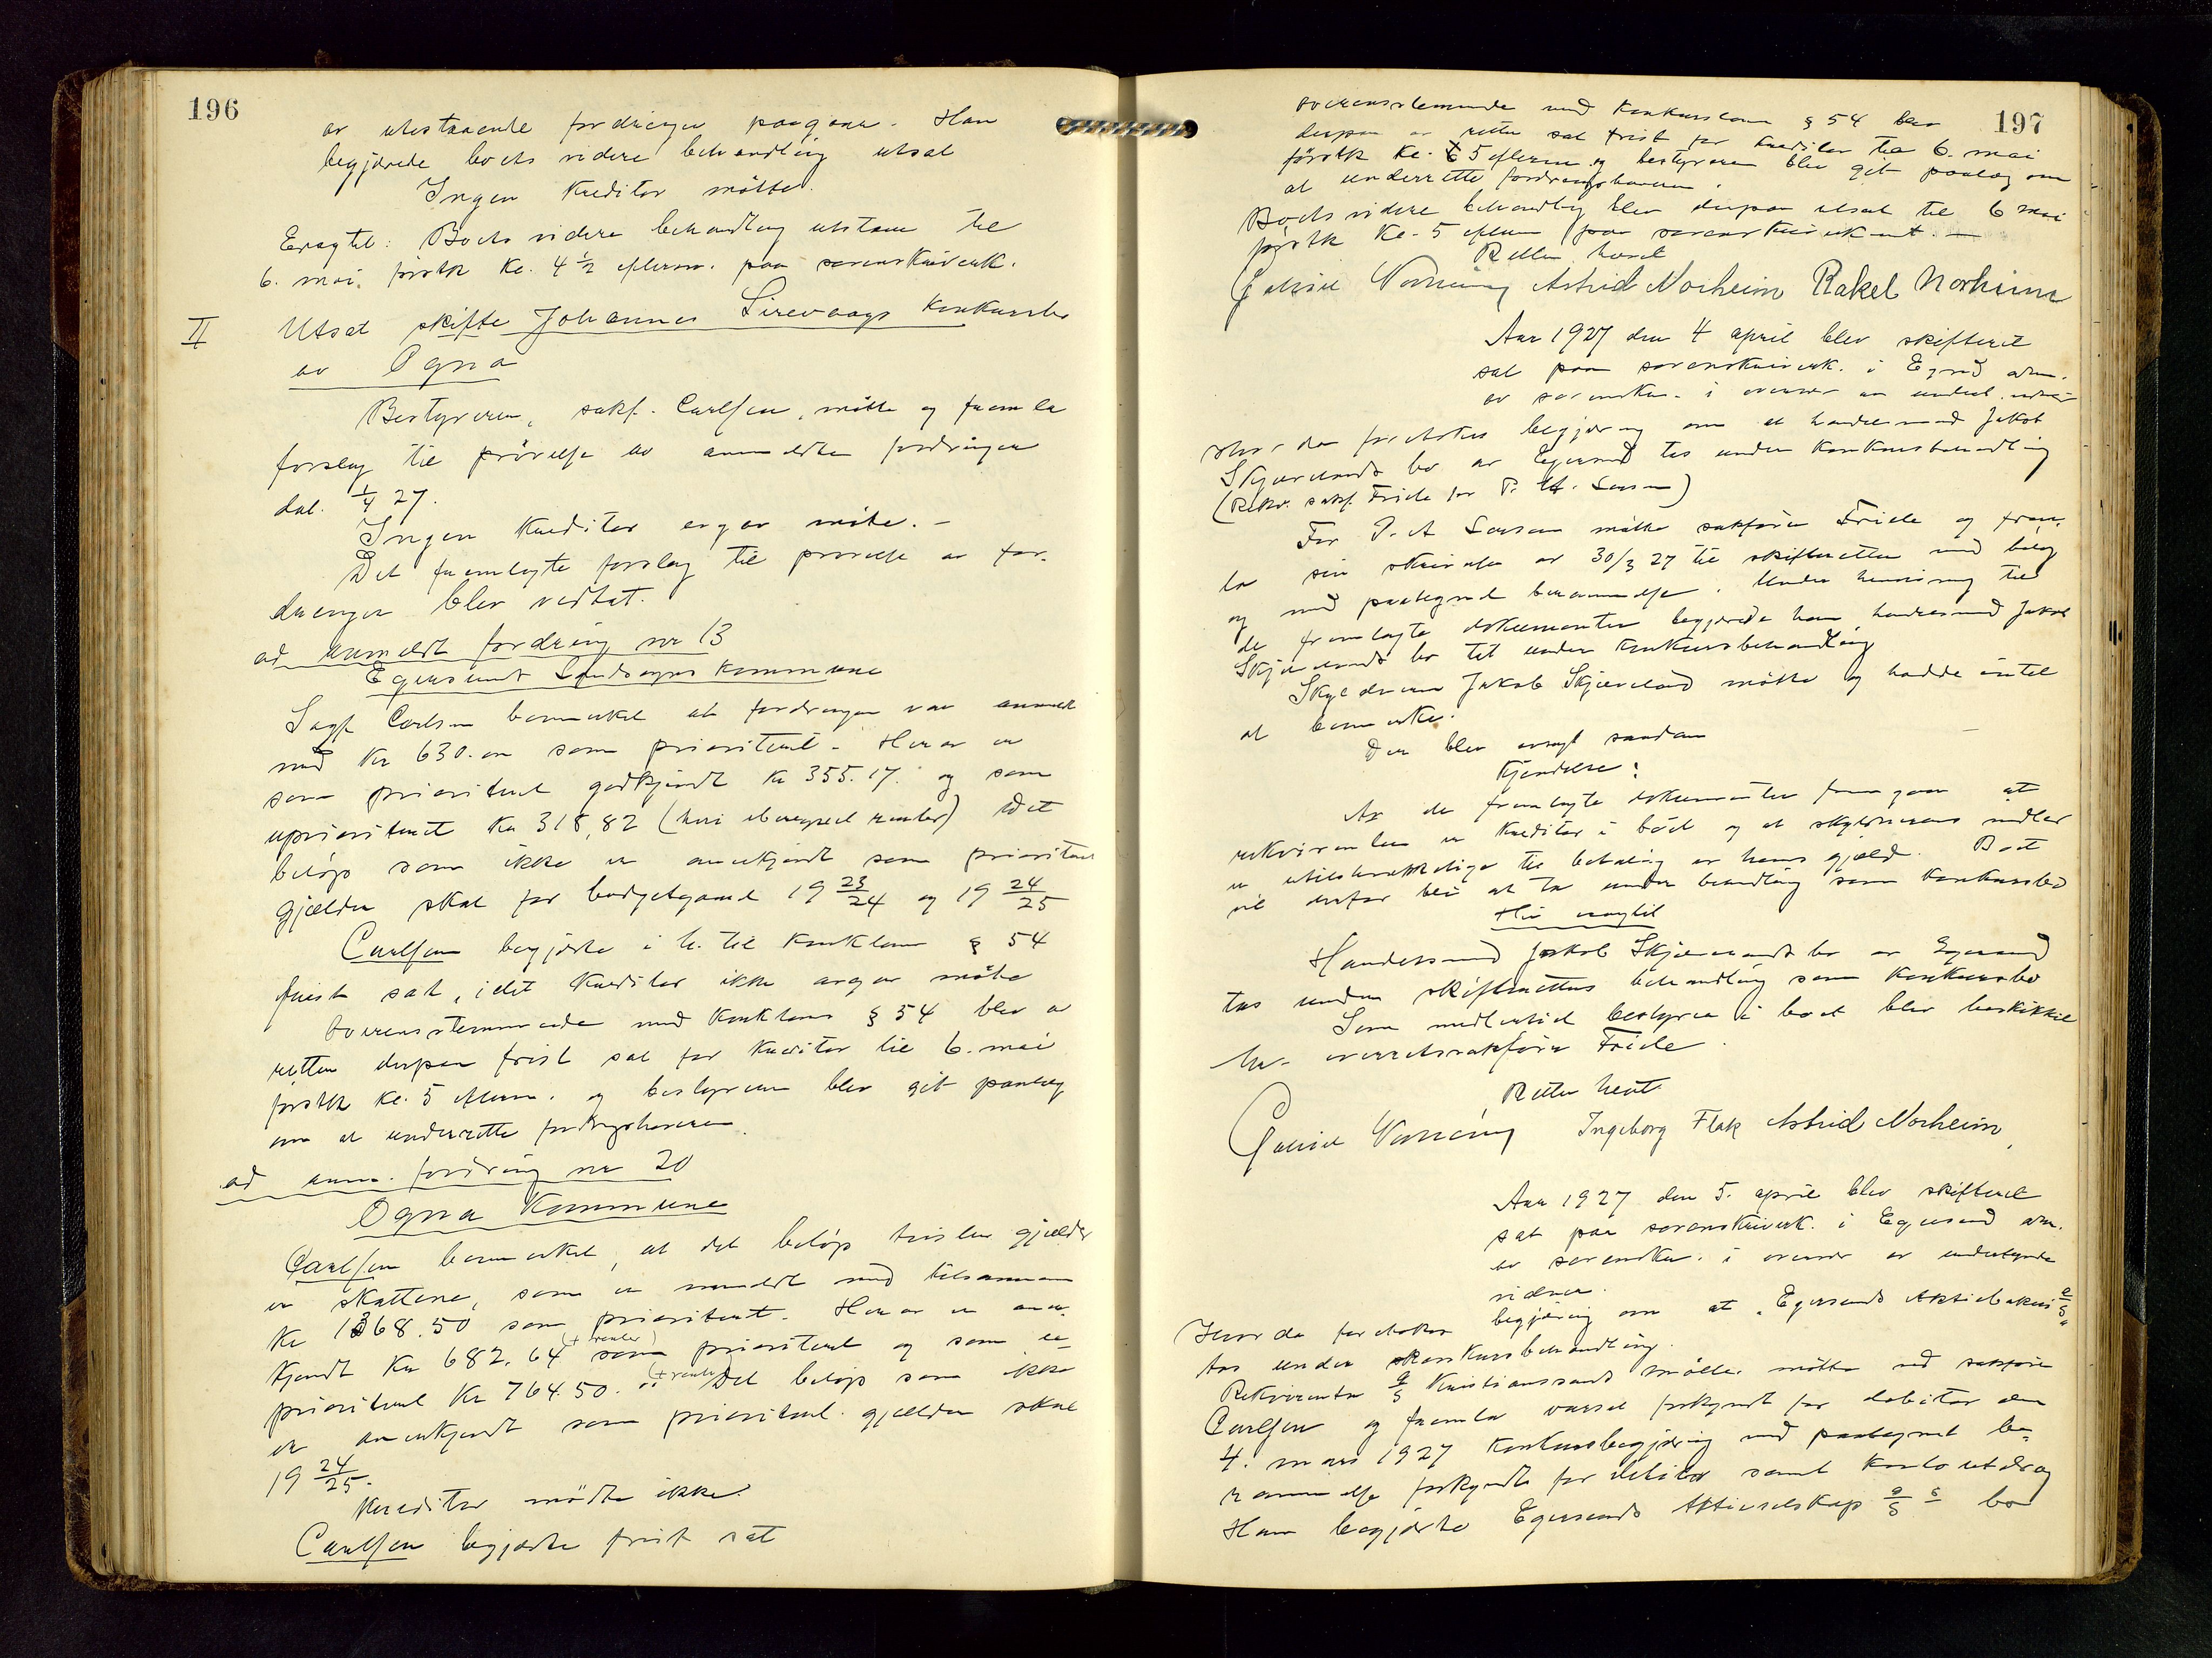 196
av utestaaende fordringer paagaar. Han
begjærede boets videre behandling utsat
Ingen kreditor møtte.
Eragtet: Boets videre behandling utstaar til
6. mai førstk kl. 4 1/2 efterm. paa sorenskriverk.
II Utsat skifte Johannes Sirevaags konkursbo
av Ogna
Bestyreren, sakf. Carlsen, møtte og fremla
forslag til prøvelse av anmeldte fordringer
dat. 1/4 27.
Ingen kreditor avgav møte. -
Det fremlagte forslag til prøvelse av for-
dringer blev vedtat.
ad anmeldt fordring nr 13
Egersund Landsogns kommune
Sagf. Carlsen bemerket at fordringen var anmeldt
med kr 630.- som prioritert. Herav er
som prioritert godkjendt kr 355.17. og som
uprioritert kr 318,82 (heri iberegnet renter) Det
beløp som ikke er anerkjendt som prioritert
gjælder skat for budgetgaaret 19 23/24 og 19 24/25
Carlsen begjærte i h. til konkloven § 54
frist sat, idet kreditor ikke avgav møte
Overensstemmende med konklovens § 54 blev av
retten derpaa frist sat for kreditor til 6. mai
førstk kl. 5 efterm. og bestyreren blev git paalæg
om at underrette fordringshaveren.
ad anm. fordring nr 20
Ogna kommune
Carlsen bemerket, at det beløp tvisten gjælder
er skattene, som er anmeldt med tilsammen
kr 1368.50 som prioritert. Herav er aner-
kjendt kr 682,64 (+ renter) som prioritert og som u-
prioritert kr 764.50. (+ renter) Det beløp som ikke
er anerkjendt som prioritert gjælder skat
19 24/25.
Kreditor mødte ikke.
Carlsen begjærte frist sat
197
overensstemmende med konkursloven § 54 blev
derpaa av retten sat frist for kreditor til 6. mai
førstk kl. 5 efterm og bestyreren blev git paalæg om
at underrette fordringshaveren.
Boets videre behandling blev derpaa utsat til 6 mai
førstk kl. 5 efterm paa sorenskriverk-nt. —
Retten hævet
Astrid Norheim Rakel Norheim
Aar 1927 den 4 april blev skifteret
sat paa sorenskriverk. i Egrsd adm.
av sorenskr. i overvær av undert. vidner
Hvor da foretokes begjæring om at handelsmand Jakob
Skjævelands bo av Egersund tas under konkursbehandling
(Rekv. sakf. Friele for P. A. Larsen)
For P. A Larsen møtte sakfører Friele og frem-
la sin skrivelse av 30/3 27 til skifteretten med bilag
og med paategnet berammelse. Under henvisning til
de fremlagte dokumenter begjærede han handelsmand Jakob
Skjævelands bo tat under konkursbehandling
Skyldneren Jakob Skjæveland møtte og hadde intet
at bemerke.
Der blev avsagt saadan
Kjendelse:
Av de fremlagte dokumenter fremgaar at
rekvirenten er kreditor i boet og at skyldnerens midler
er utilstrækkelige til betaling av hans gjæld. Boet
vil derfor bli at ta under behandling som konkursbo
Thi eragtet
Handelsmand Jakob Skjævelands bo av Egersund
tas under skifterettens behandling som konkursbo
Som midlertidig bestyrer i boet blev beskikket
hr. overretssakfører Friele.
Retten hevet.
Ingeborg Flak Astrid Norheim
Aar 1927 den 5. april blev skifteret
sat paa sorenskriverk. i Egersund adm.
av sorenskr. i overvær av undertegnede
vidner.
Hvor da foretokes begjæring om at "Egersunds Aktiebakeri A/S"
tas under konkursbehandling.
Rekvirenten A/S Kristianssands møller møtte ved sakfører
Carlsen og fremla varsel forkyndt for debitor den
4. mars 1927 konkursbegjæring med paategnet be-
rammelse forkyndt for debitor samt kontoutdrag
Han begjærte Egersunds Aktieselskap A/S s bo